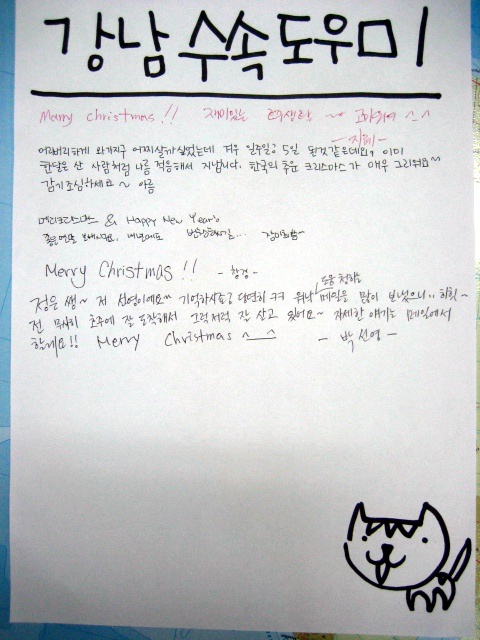 강남 수속 도우미
Merry christmas!! 재미있는 ~ 고마워 ^^
-지혜-
어리버리하게 와가지구 어찌살까 싶었는데 겨우 일주일하고 5일 된것같은데요, 이미
한달은 산 사람처럼 나름 적응해서 지냅니다. 한국의 추운 크리스마스가 매우 그리워요~
감기조심하세요~ 아름
메리크리스마스 & Happy New Year's
좋은 연말 보내시고, 내년에도
Merry Christmas!! -창경-
도움 청하는
정은 쌤~ 저 선영이에요~ 기억하시죠? 당연히 ㅋㅋ 워낙 메일을 많이 보냈으니.. 히힛~
전 무사히 호주에 잘 도착해서 그럭저럭 잘 살고 있어요~ 자세한 얘기는 메일에서
할게요!! Merry Christmas ^__^ - 박선영 -